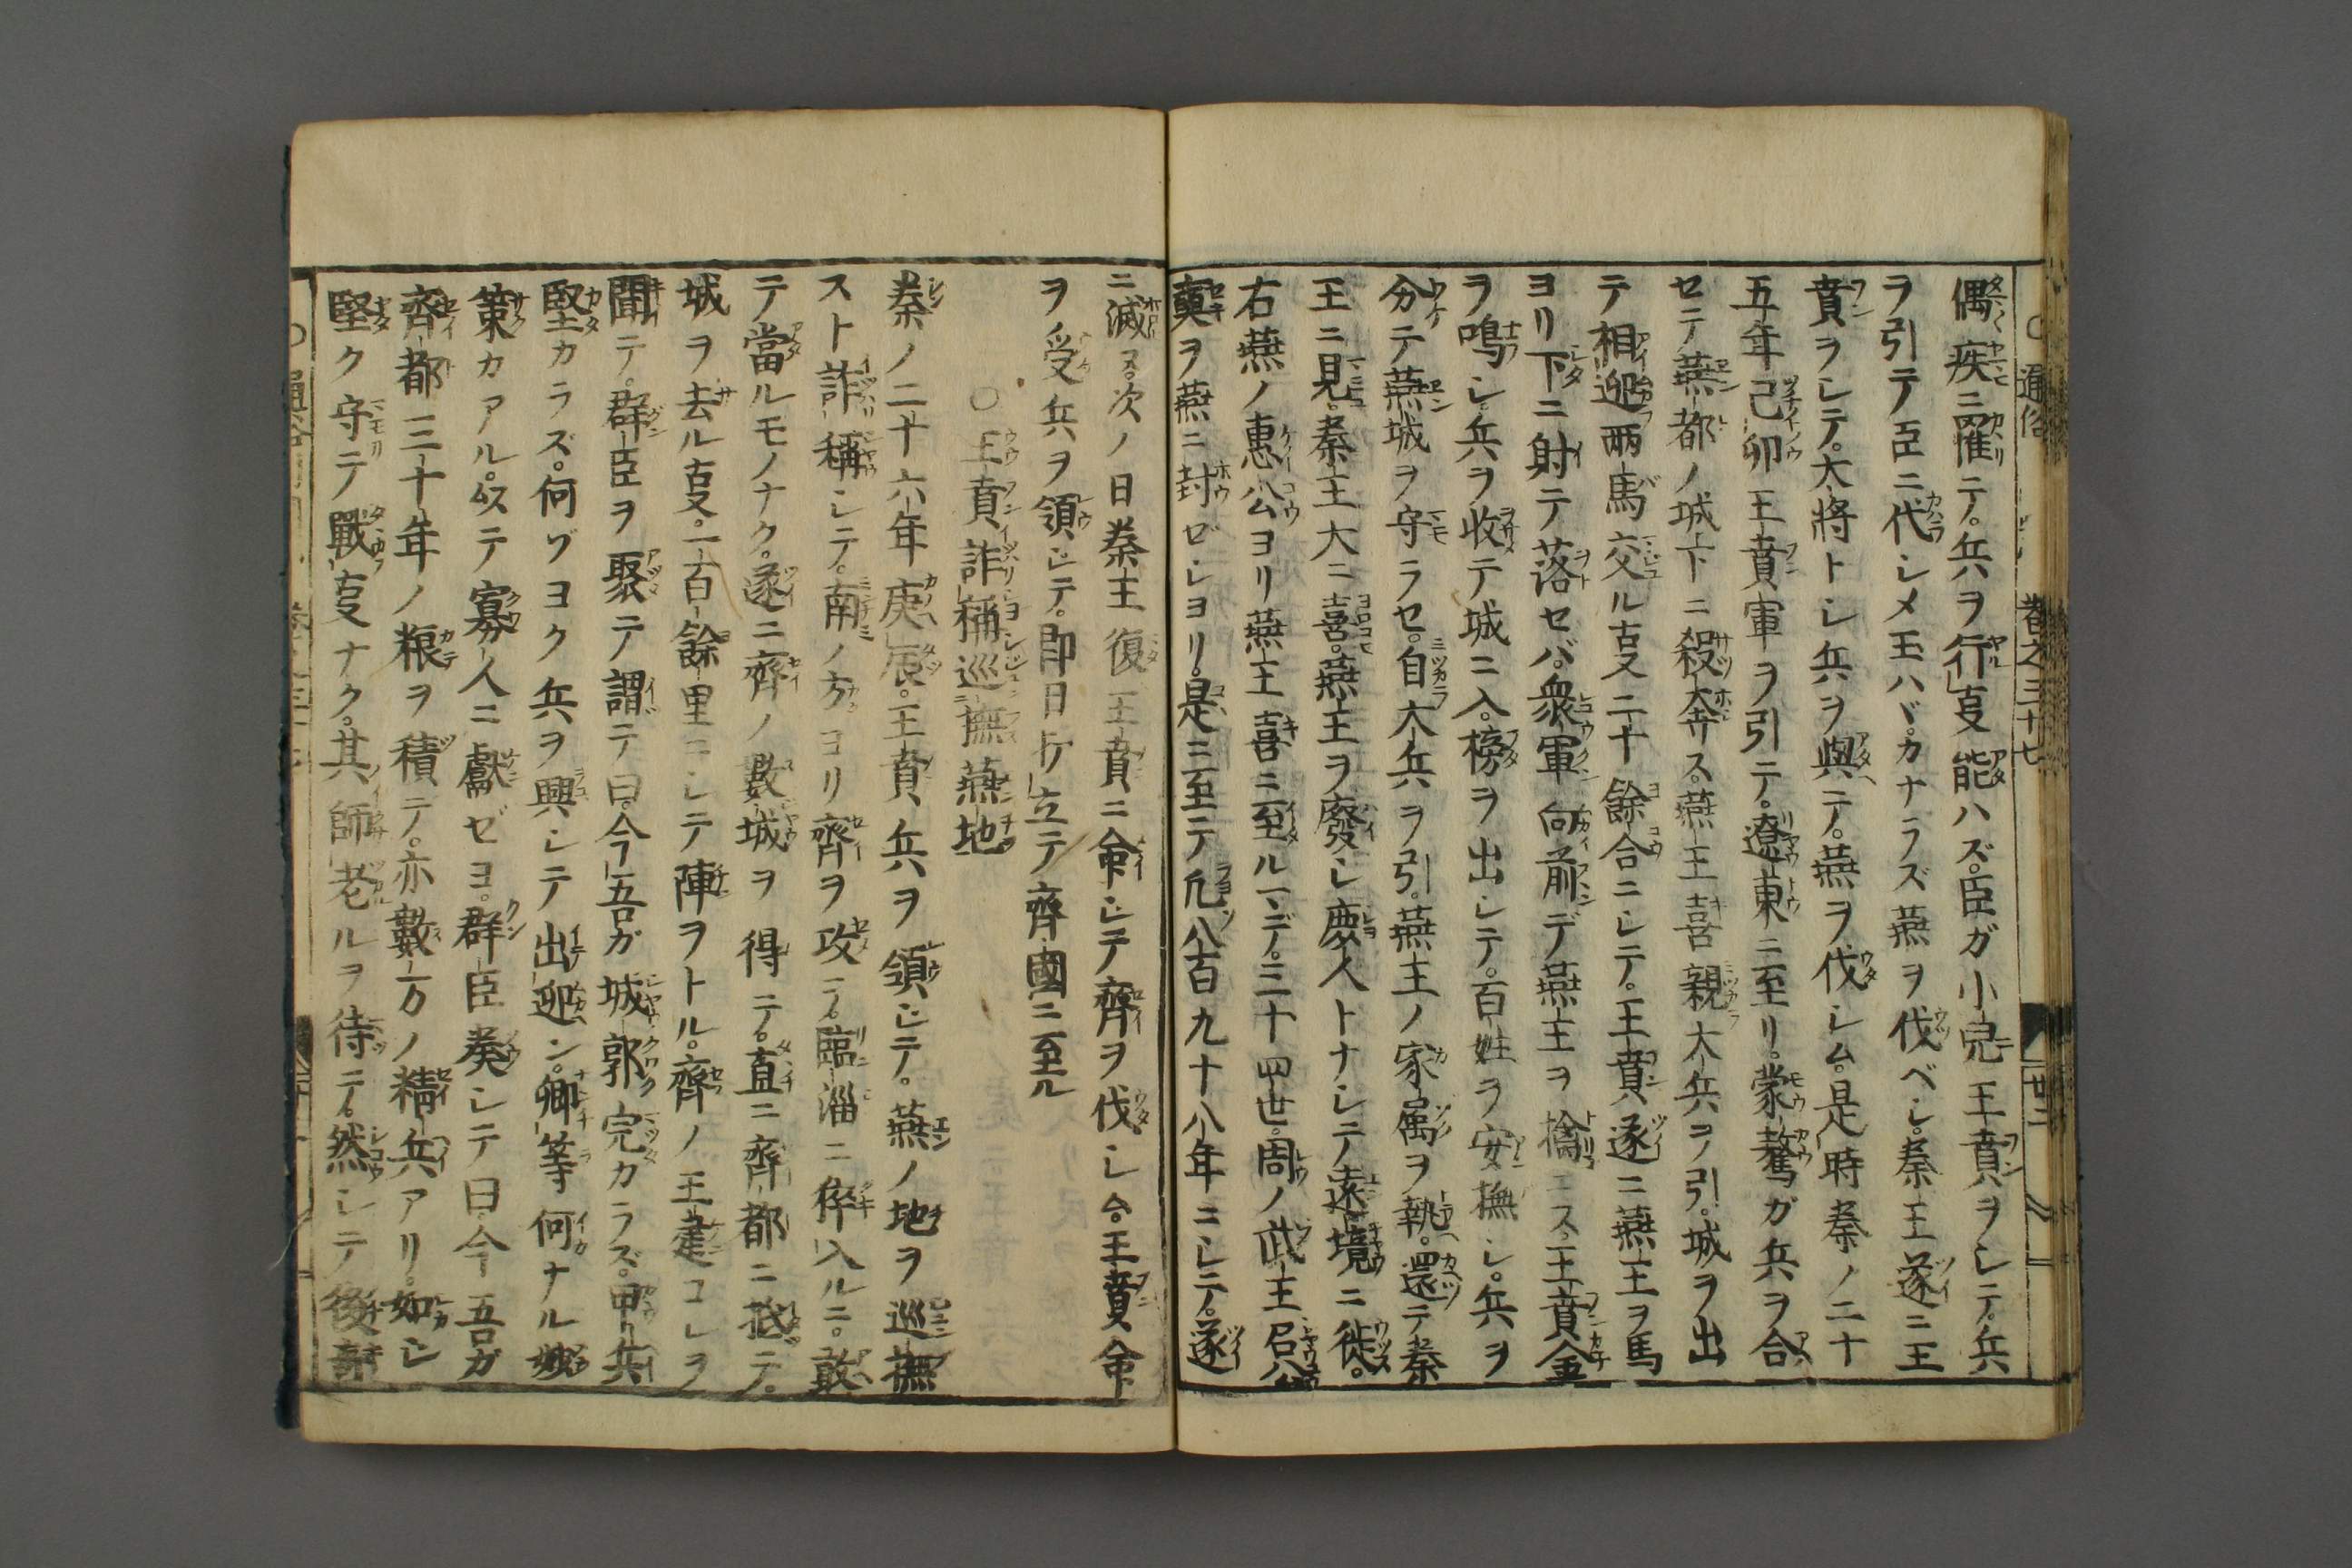 ○通俗 巻之三十七 廿二
偶疾ニ罹テ。兵ヲ行叓能ハズ。臣ガ小兒王賁ヲシテ。兵
ヲ引テ臣ニ代シメ玉ハヾ。カナラズ燕ヲ伐ベシ。秦王遂ニ王
賁ヲシテ。大將トシ兵ヲ與テ。燕ヲ伐シム。是時秦ノ二十
五年己卯王賁軍ヲ引テ。遼東ニ至リ。蒙驁ガ兵ヲ合
セテ燕都ノ城下ニ殺奔ス。燕王喜親大兵ヲ引。城ヲ出
テ相迎両馬交ル叓二十餘合ニシテ。王賁遂ニ燕王ヲ馬
ヨリ下ニ射テ落セバ。衆軍向前デ燕王ヲ擒ニス。王賁金
ヲ鳴シ兵ヲ收テ城ニ入。榜ヲ出シテ。百姓ヲ安撫シ。兵ヲ
分テ燕城ヲ守ラセ。自大兵ヲ引。燕王ノ家属ヲ執。還テ秦
王ニ見。秦王大ニ喜。燕王ヲ廢シ慶人トナシテ遠境ニ徙。
右燕ノ惠公ヨリ燕王喜ニ至ルマデ。三十四世。周ノ武王召公
奭ヲ燕ニ封ゼシヨリ。是ニ至テ凡八百九十八年ニシテ。遂
ニ滅ス。次ノ日秦主復王賁ニ命シテ齊ヲ伐シム。王賁命
ヲ受兵ヲ領シテ。即日打立テ齊國ニ至ル
○王賁詐稱巡撫燕地
秦ノ二十六年庚辰。王賁兵ヲ領シテ。燕ノ地ヲ巡撫
スト詐稱シテ。南ノ方ヨリ齊ヲ攻テ。臨淄ニ倅入ルニ。敢
テ當ルモノナク。遂ニ齊ノ數城ヲ得テ。直ニ齊都ニ抵テ。
城ヲ去ル叓一百餘里ニシテ陣ヲトル。齊ノ王建コレヲ
聞テ。群臣ヲ聚テ謂テ曰。今吾ガ城郭完カラズ。甲兵
堅カラズ。何ヅヨク兵ヲ興シテ出迎ン。卿等何ナル妙
策カアル。以テ寡人ニ獻ゼヨ。群臣奏シテ曰今吾ガ
齊都三十年ノ粮ヲ積テ。亦數万ノ精兵アリ。如シ
堅ク守テ戰叓ナク。其師老ルヲ待テ。然シテ後